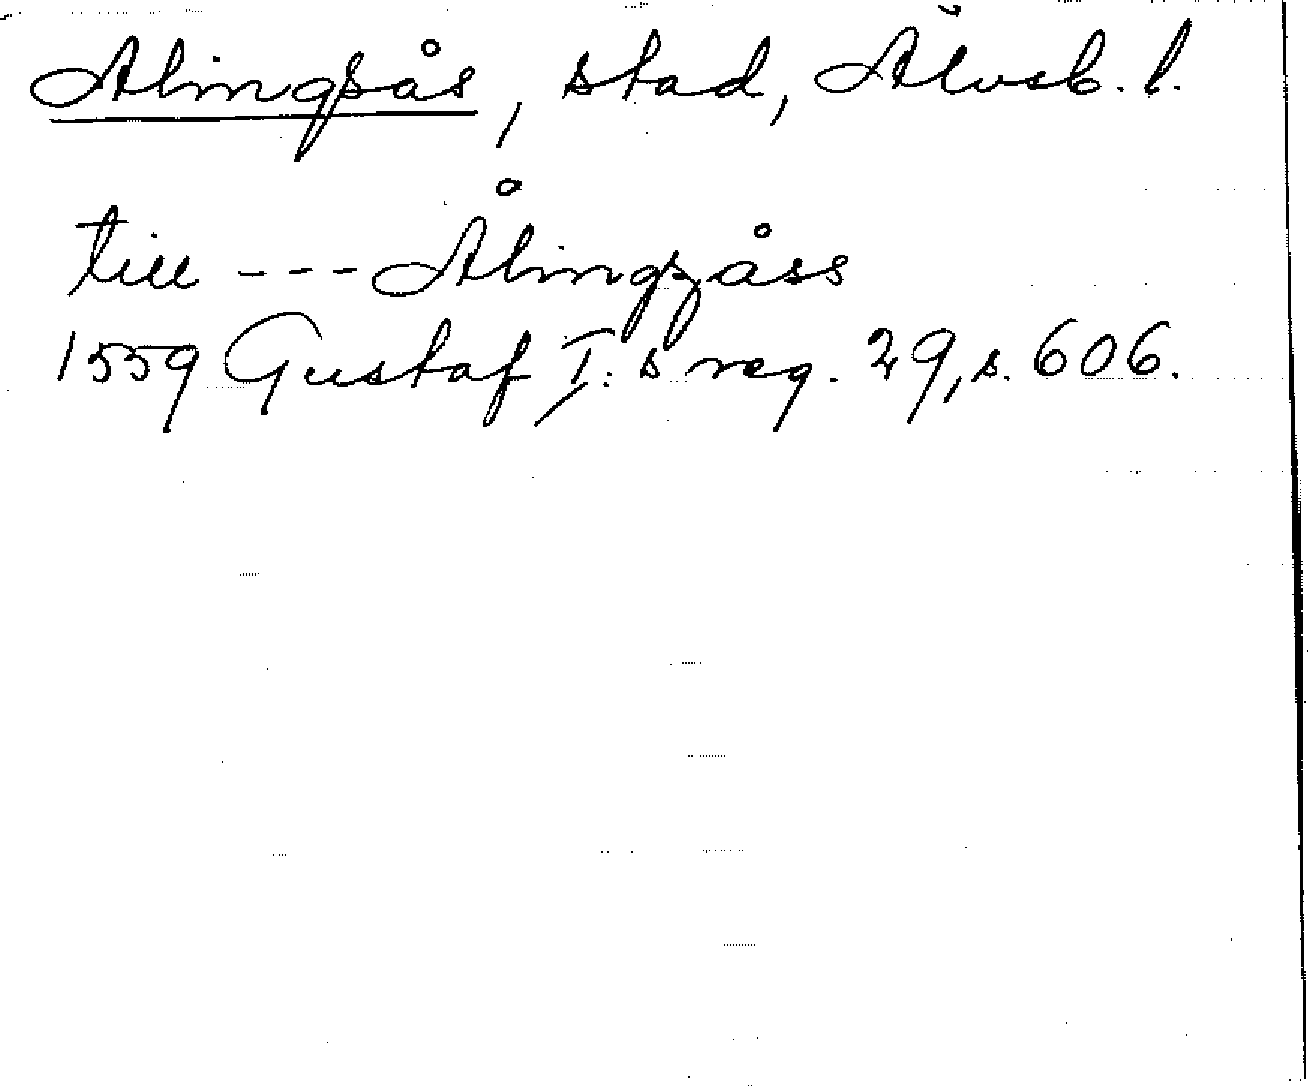 Alingsås, stad, Älvsb. l.
till --- Ålingzåss
1559 Gustaf I:s reg. 29, s. 606.